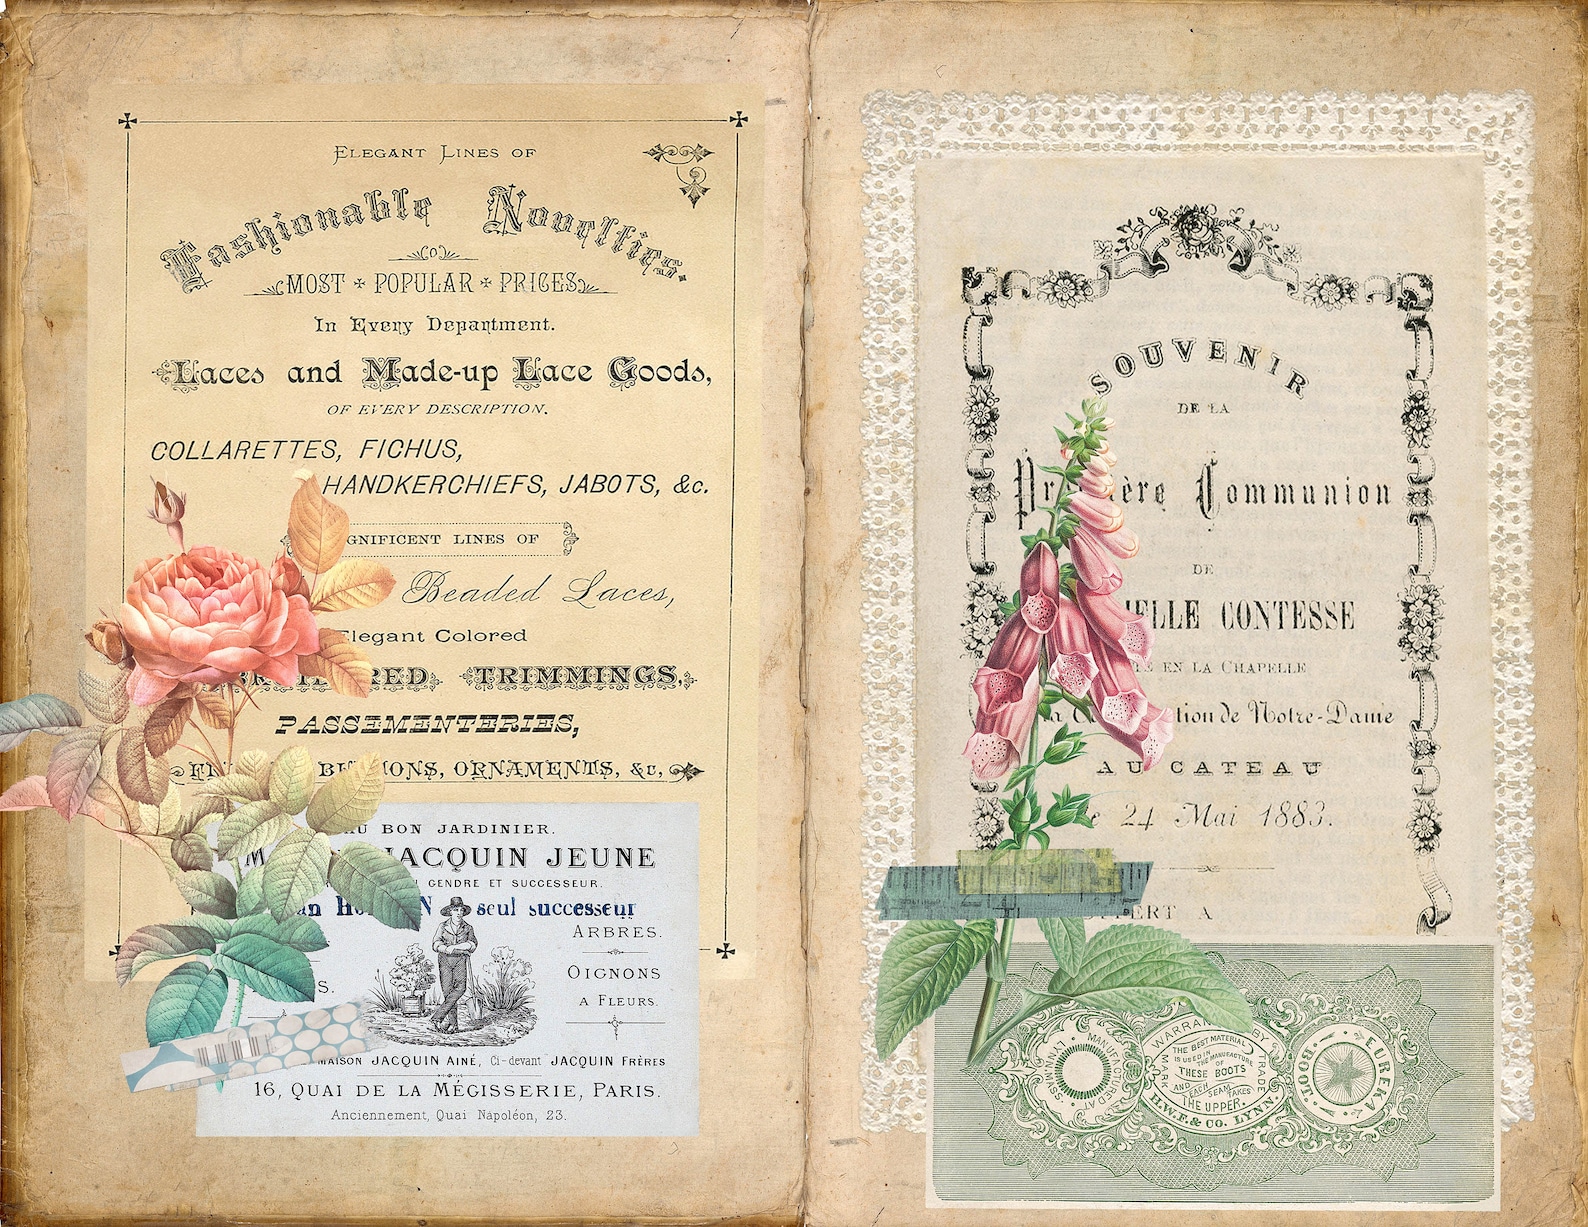 Elegant Lines of
Fashionable Novelties.
MOST POPULAR PRICES
In Every Department.
Laces and Made-up Lace Goods,
OF EVERY DESCRIPTION.
COLLARETTES, FICHUS,
HANDKERCHIEFS, JABOTS, &c.
GNIFICENT LINES OF
Beaded Laces,
Elegant Colored
RED TRIMMINGS,
PASSEMENTERIES,
ORNAMENTS, &c,
AU BON JARDINIER.
JACQUIN JEUNE
GENDRE ET SUCCESSEUR.
seul successeur
ARBRES.
OIGNONS
A FLEURS.
MAISON JACQUIN AINÉ, Ci-devant JACQUIN FRÈRES
16, QUAI DE LA MÉGISSERIE, PARIS.
Anciennement, Quai Napoléon, 23.
SOUVENIR
DE LA
Pr ère Communion
DE
ELLE CONTESSE
EN LA CHAPELLE
tion de Notre-Dame
AU CATEAU
e 24 Mai 1883.
ERT A
MANUFACTURED AT
LYNN, MASS.
WARRAN BY
TRADE MARK
THE BEST MATERIAL
IS USED IN
THE MANUFACTURE
OF
THESE BOOTS
AND EACH SEAM TAKES
THE UPPER.
H.W.F. & CO. LYNN.
EUREKA
BOOT.